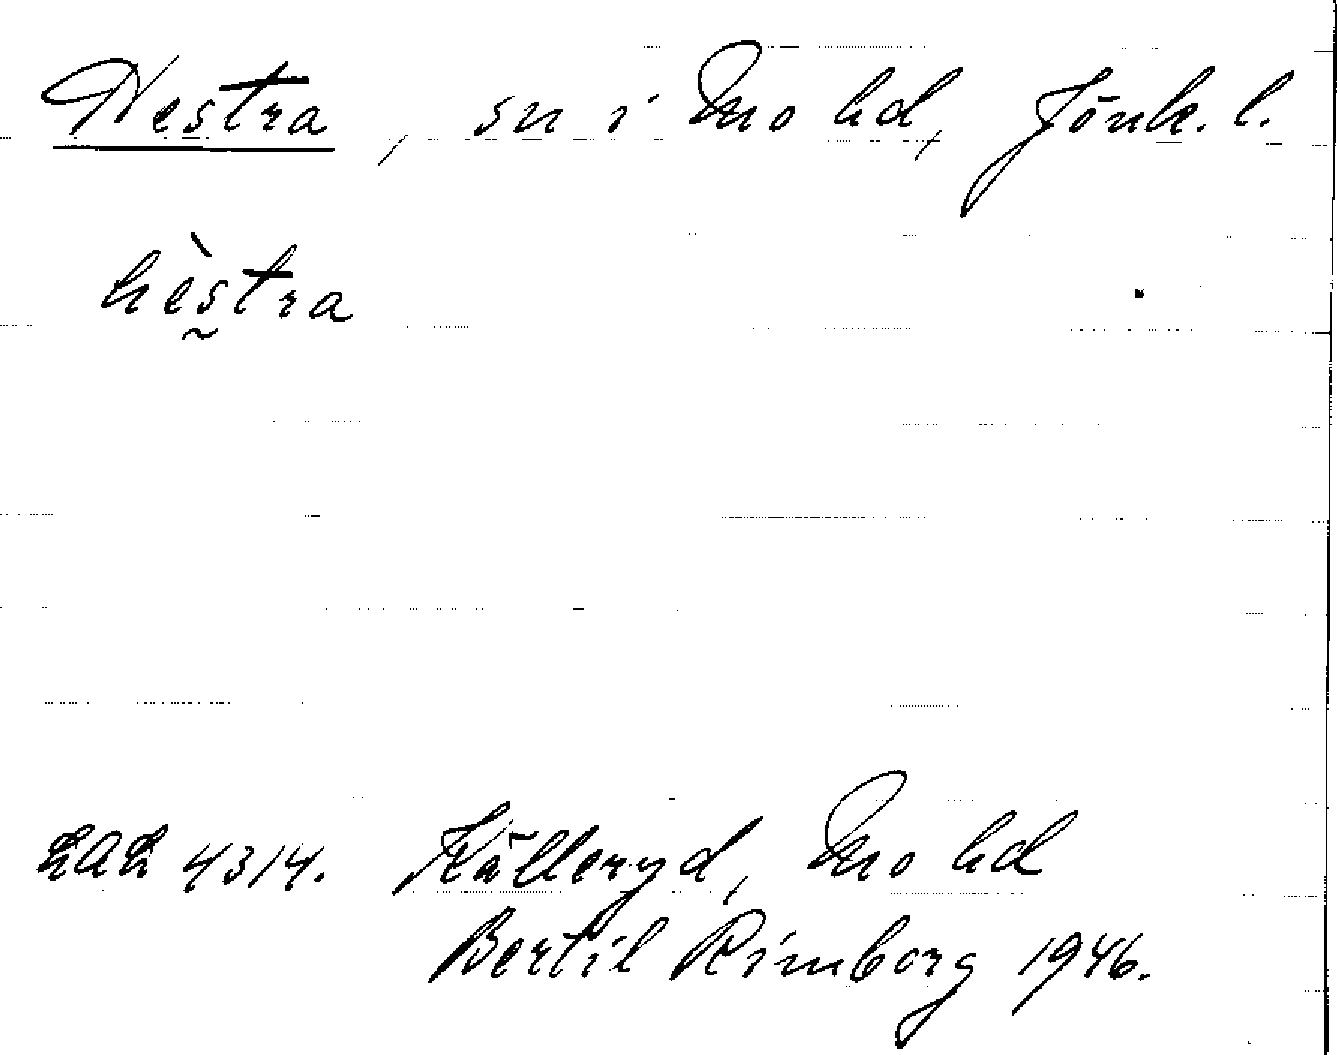 Hestra, sn i Mo hd, Jönk. l.
hèstra
LAL 4314. Källeryd, Mo hd
Bertil Rimborg 1946.